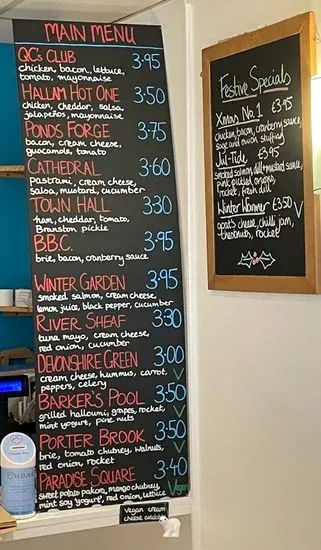 MAIN MENU
QC's CLUB 3.95
chicken, bacon, lettuce,
tomato, mayonnaise
HALLAM HOT ONE 3.50
chicken, cheddar, salsa,
jalapeños, mayonnaise
PONDS FORGE 3.75
bacon, cream cheese,
guacamole, tomato
CATHEDRAL 3.60
pastrami, cream cheese,
salsa, mustard, cucumber
TOWN HALL 3.30
ham, cheddar, tomato,
Branston pickle
B.B.C. 3.95
brie, bacon, cranberry sauce
WINTER GARDEN 3.95
smoked salmon, cream cheese,
lemon juice, black pepper, cucumber
RIVER SHEAF 3.30
tuna mayo, cream cheese,
red onion, cucumber
DEVONSHIRE GREEN 3.00
cream cheese, hummus, carrot, V
peppers, celery
BARKER'S POOL 3.50
grilled halloumi, grapes, rocket, V
mint yogurt, pine nuts
PORTER BROOK 3.50
brie, tomato chutney, walnuts, V
red onion, rocket
PARADISE SQUARE 3.40
sweet potato pakora, mango chutney,
mint soy 'yogurt', red onion, lettuce Vegan
vegan cream
cheese available
Festive Specials
Xmas No.1 £3.95
chicken, bacon, cranberry sauce,
sage and onion stuffing
Jul-Tide £3.95
smoked salmon, dill+mustard sauce,
pink pickled onions,
rocket, fresh dill
Winter Warmer £3.50
goats cheese, chilli jam, V
chestnuts, rocket